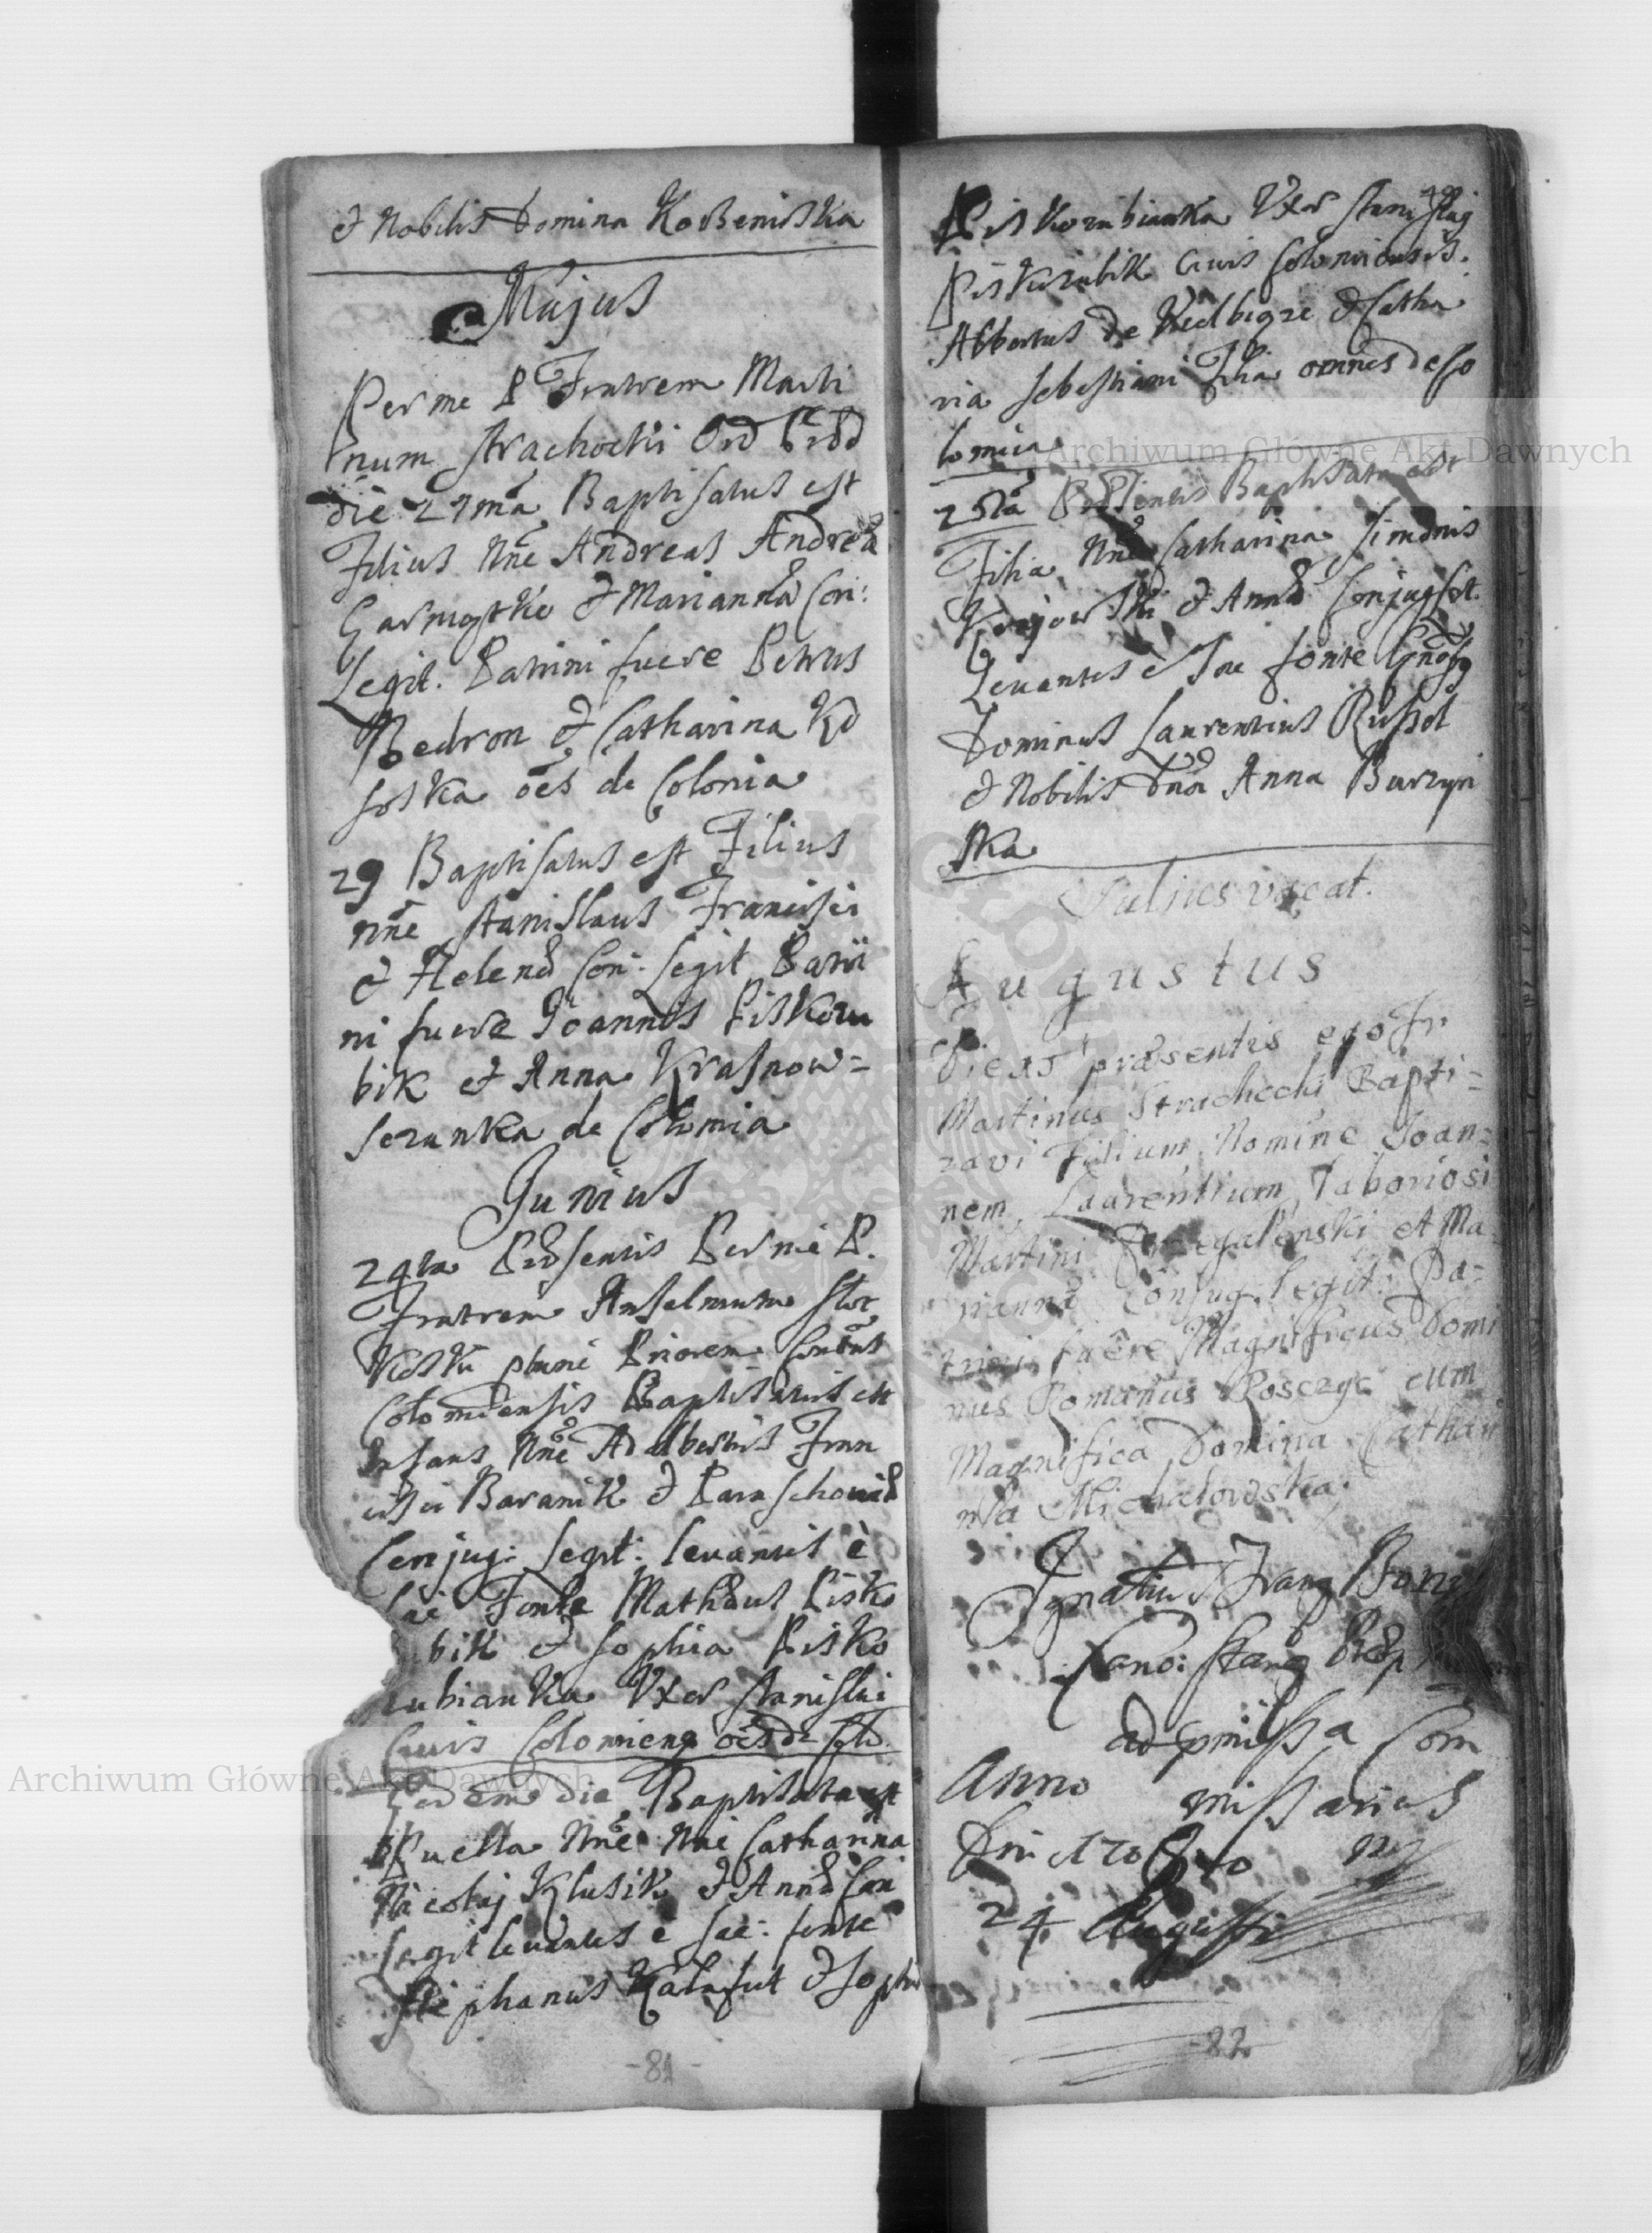 & Nobilis Domina Kobzeniska
Majus
Per me P Fratrem Marti
num Strachocki Ord Præd
die 27ma Baptisatus est
Filius Nñe Andreas Andreæ
& Mariannæ Con:
Legit. Patrini fuere Petrus
Bedron & Catharina Ko
soska oes de Colonia
29 Baptisatus est Filius
nñe Stanislaus Francisci
& Helenæ Con: Legit Patri
ni fuere Joannes Piskozu
bik et Anna Krasnow=
de Colomia
Junius
24ta Præsentis Per me P.
Fratrem Anselmum
Priorem Contus
Colomiensis Baptisatus est
Infans Nñe Adalbertus Fran
cisci Baranik & Paraschoviæ
Conjug: Legit: Levantes è
Sac Fonte Mathæus Pisko
bik & Sophia Pisko
zubianka Uxor Stanislai
Civis Colomiens oes de Colo.
Eadem die Baptisata est
Puella Nñe Catharina
Nicolaj Klusik & Annæ Con
Legit levantes e Sac: fonte
Stephanus Kalafut & Sophia
-81-
Piskozubianka Uxor Stanislaj
Piskozubik Civis Colomiensis.
Albertus de & Catha
ria Sebestiani Filia omnes de Co
lomia
25ta Præsentis Baptisata est
Filia Nñe Catharina Simonis
& Annæ Conjug
Levantes è Sac fonte
Dominus Laurentius Russol
& Nobilis Dna Anna Burzyn
ska
Julius vacat.
Augustus
Die præsentis ego Fr
Martinus Strachocki Bapti=
zavi Filium Nomine Joan=
nem, Laurentium, Laboriosi
Martini et Ma
riannæ Conjug. legit: Pa=
trini fuere Magnificus Domi
nus Romanus cum
Magnifica Domina Cathari
na Michałowska.
Ignatius Franz
Cano:
ad præmissa Com
Anno missarius
Dni 170
24 Augusti
-82-
Archiwum Główne Akt Dawnych
Archiwum Główne Akt Dawnych